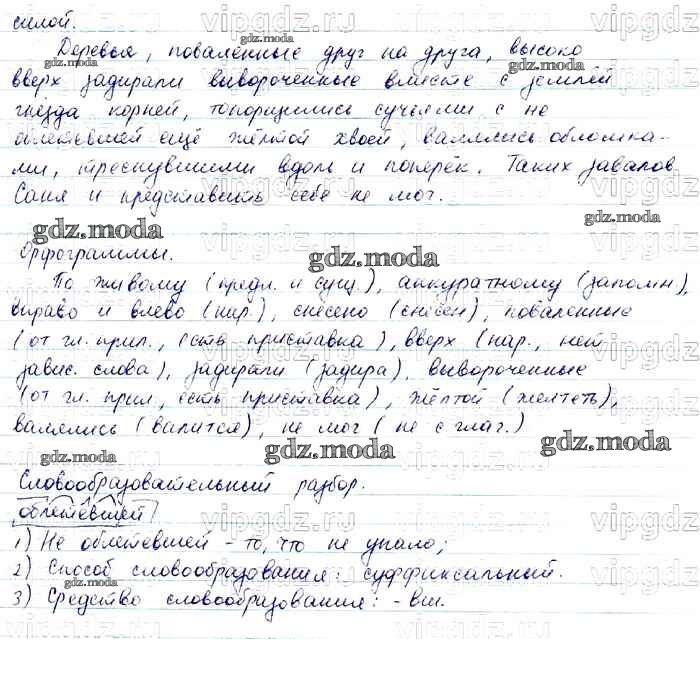 силой.
Деревья, поваленные друг на друга, высоко
вверх задирали вывороченные вместе с землёй
гнёзда корней, топорщились сучьями с не
облетевшей ещё жёлтой хвоей, валялись обломка-
ми, треснувшими вдоль и поперёк. Таких завалов
Саня и представить себе не мог.
Орфограммы.
По живому (предл. и сущ.), аккуратному (запомн),
вправо и влево (нар.), снесено (снесён), поваленные
(от гл. прил., есть приставка), вверх (нар., нет
завис. слова), задирали (задира), вывороченные
(от гл. прил, есть приставка), жёлтой (желтеть),
валялись (валится), не мог (не с глаг.)
Словообразовательный разбор.
облетевшей
1) Не облетевшей - то, что не упало;
2) Способ словообразования: суффиксальный.
3) Средство словообразования: -вш.
vipgdz.ru
gdz.moda